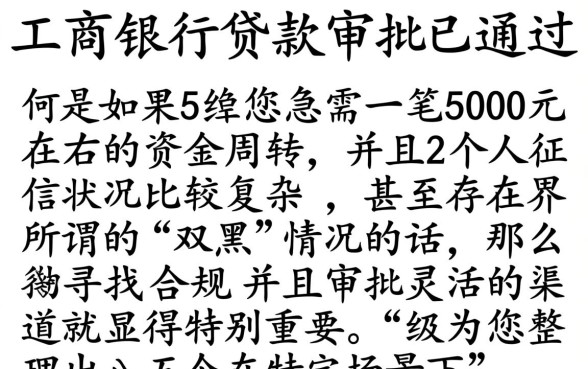 工商银行贷款审批已通过
何是如果5绰您急需一笔5000元
在右的资金周转，并且2个人征
信状况比较复杂，甚至存在界
所谓的“双黑”情况的话，那么
寻找合规并且审批灵活的渠
道就显得特别重要。“级为您整